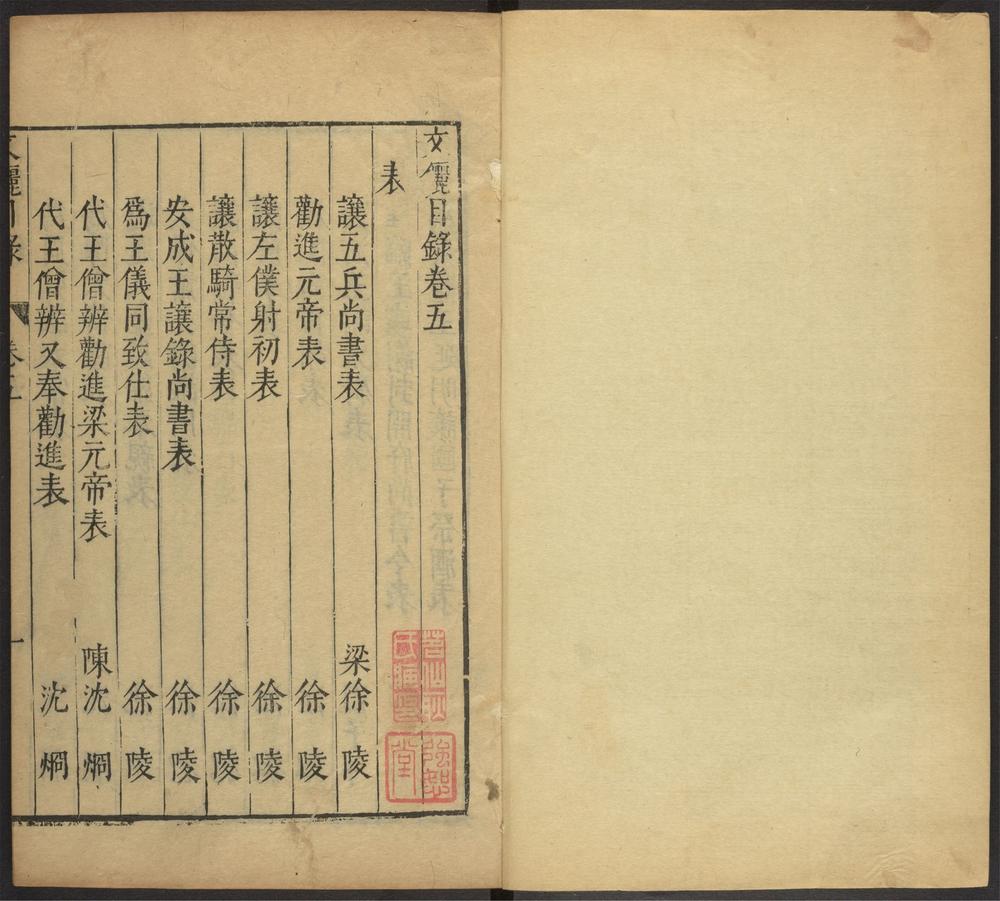 文儷目錄卷五
表
讓五兵尚書表 梁徐陵
勸進元帝表 徐陵
讓左僕射初表 徐陵
讓散騎常侍表 徐陵
安成王讓錄尚書表 徐陵
爲王儀同致仕表 徐陵
代王僧辨勸進梁元帝表 陳沈烱
代王僧辨又奉勸進表 沈烱
文儷目錄 卷五 一
強恕堂